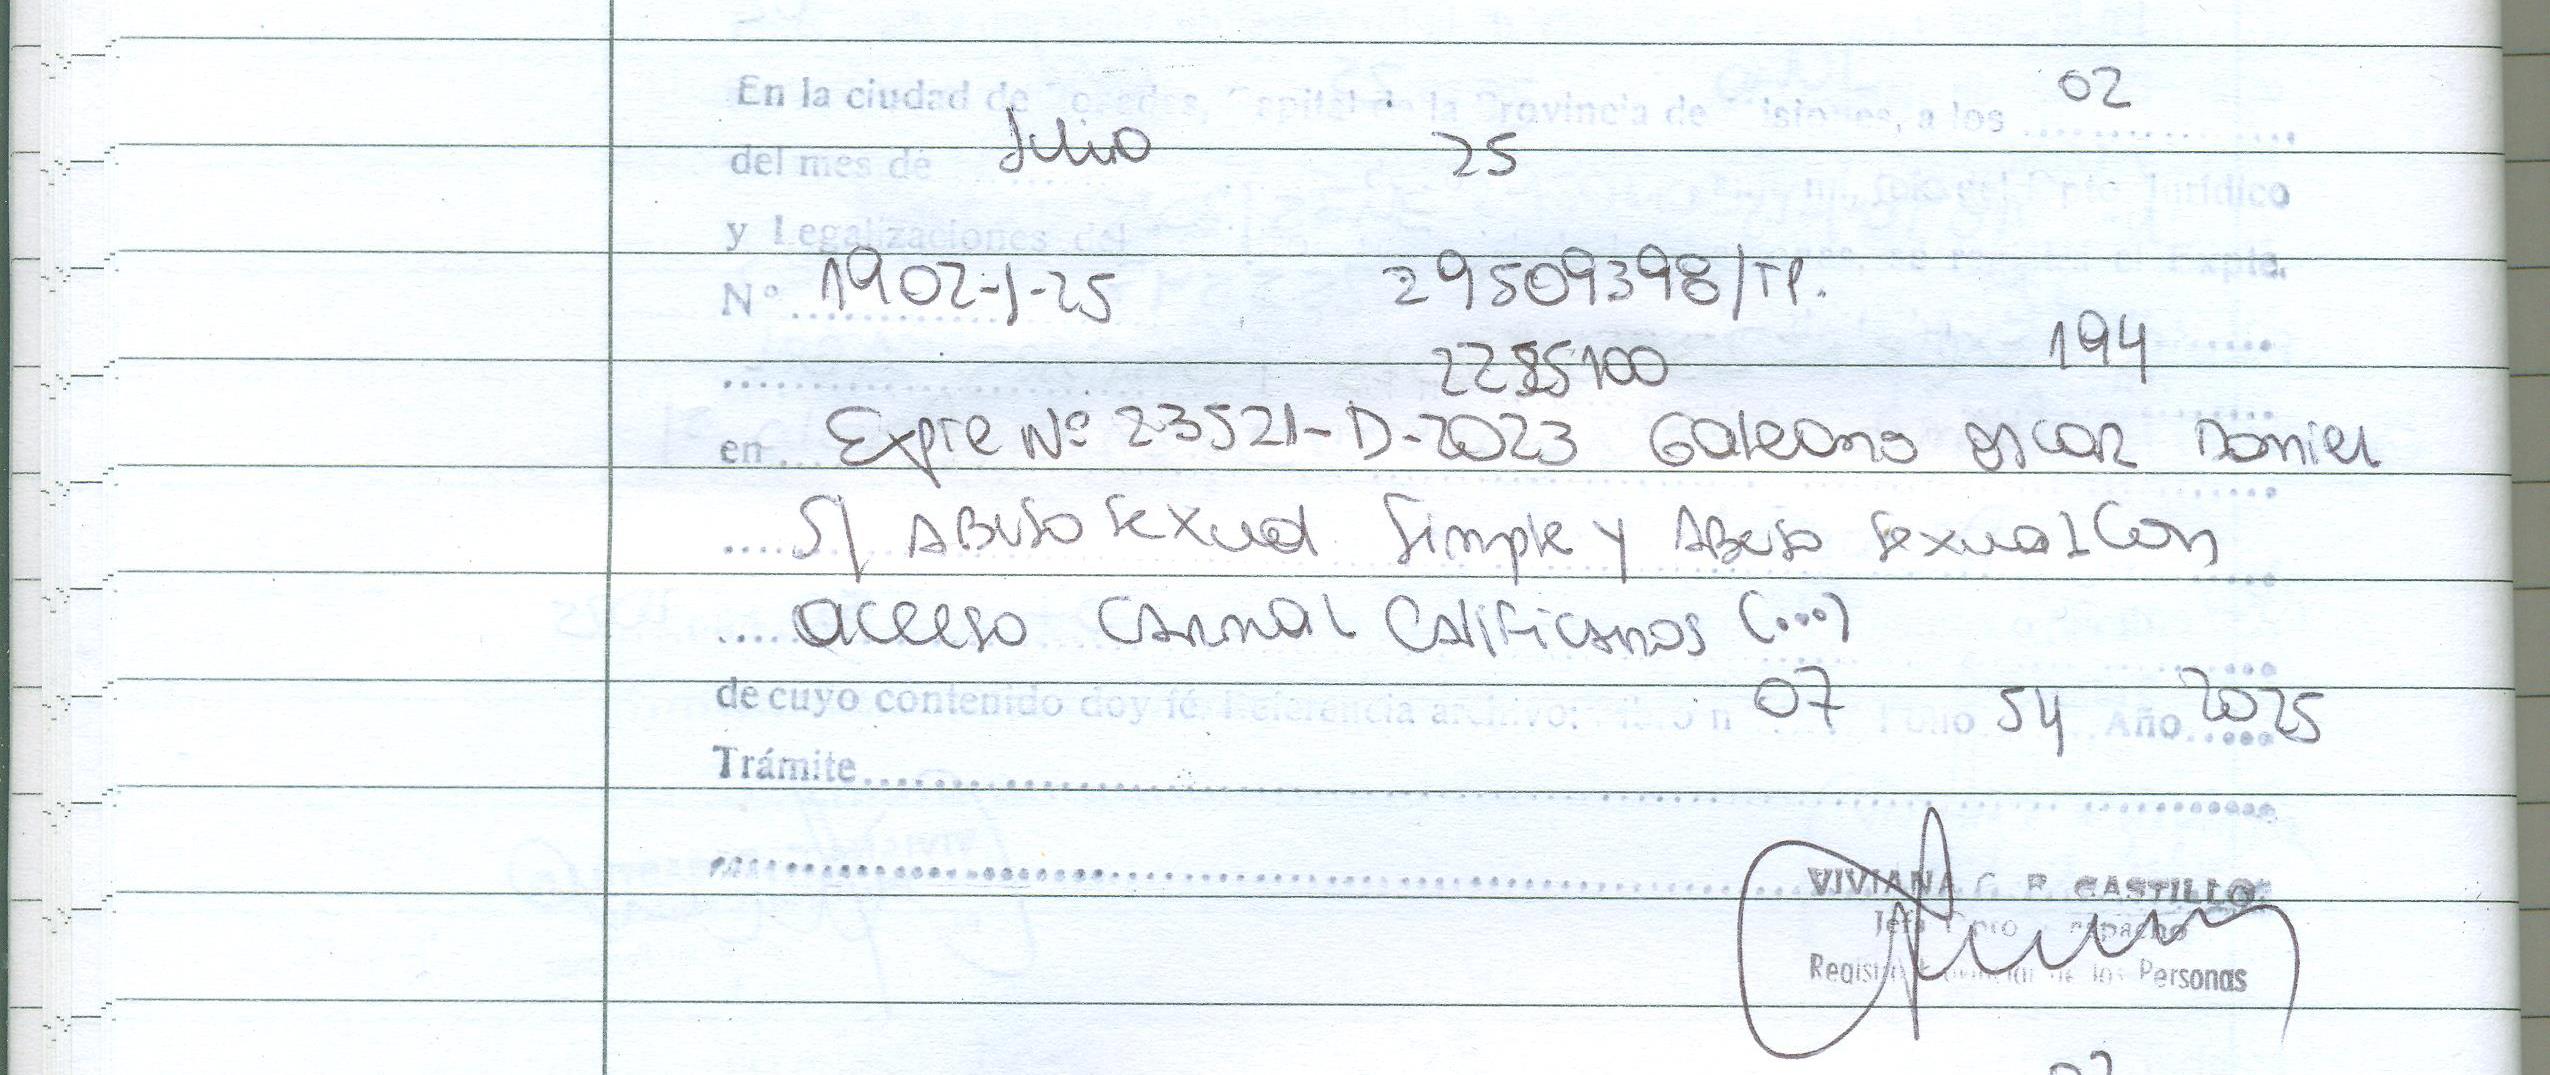 En la ciudad de Posadas, Capital de la Provincia de Misiones, a los 02
del mes de Julio 25
Jurídico
y Legalizaciones del
Expte.
Nº 1902-J-25 29509398/TP.
2285100 194
en Expte Nº 23521-D-2023 Galeano Oscar Daniel
S/ Abuso Sexual Simple y Abuso Sexual Con
acceso Carnal Calificados (...)
de cuyo contenido doy fé. Referencia archivo: Libro n 07 Folio 54 Año 2025
Trámite
VIVIANA C. R. CASTILLO
Jefa Dpto Despacho
Registro Provincial de las Personas